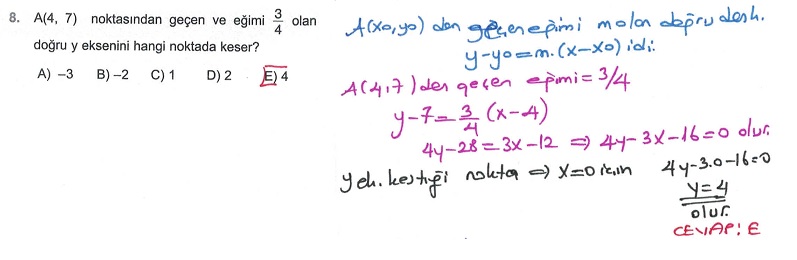 8. A(4, 7) noktasından geçen ve eğimi 3/4 olan
doğru y eksenini hangi noktada keser?
A) −3 B) −2 C) 1 D) 2 E) 4
A(x0,y0) den geçen eğimi m olan doğru denk.
y−y0=m.(x−x0) idi.
A(4,7) den geçen eğimi=3/4
y−7=3/4(x−4)
4y−28=3x−12 ⇒ 4y−3x−16=0 olur.
y ek. kestiği nokta ⇒ x=0 için 4y−3.0−16=0
y=4
olur.
CEVAP: E